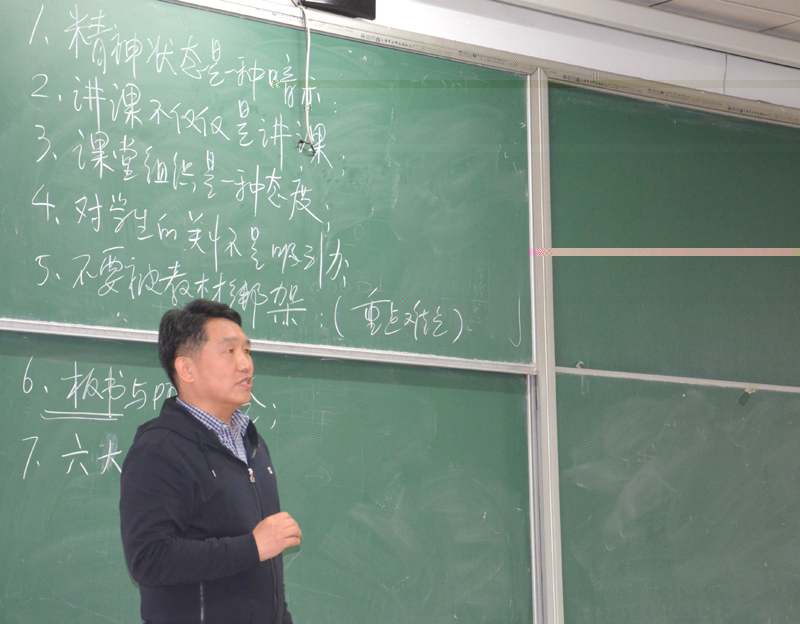 1、精神状态是一种暗示;
2、讲课不仅仅是讲课;
3、课堂组织是一种态度;
4、对学生的关怀是吸引力;
5、不要被教材绑架;(重点难点)
6、板书与PP
7、六大